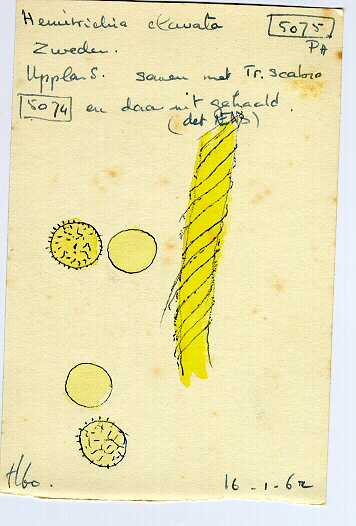 Hemitrichia clavata
5075
PA
Zweden.
Uppland. samen met Tr. scabra
5074 en daar uit gehaald.
(det
Hbo. 16-1-62